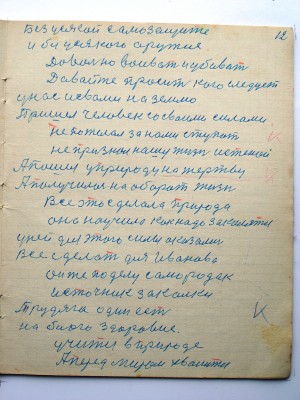 12
Без усякой самозащите
и без усякого оружие
Довольно воиват и убиват
Давайте просит кого следует
у нас и свами на землю
Пришел человек со своими силами
не пожелал за нами ступат К
не признал нашу жизн истеной
А пошел у природу на жертву
А получилос на оборат жизн
Все это сделала природа
она научила как надо закалятся
у ней для этого силы оказалис
Все сделат для Иванова
он те по делу самородак
источник закалки
Трудяга один ест К
на благо здоровие
учится в природе
А перед миром хвалится